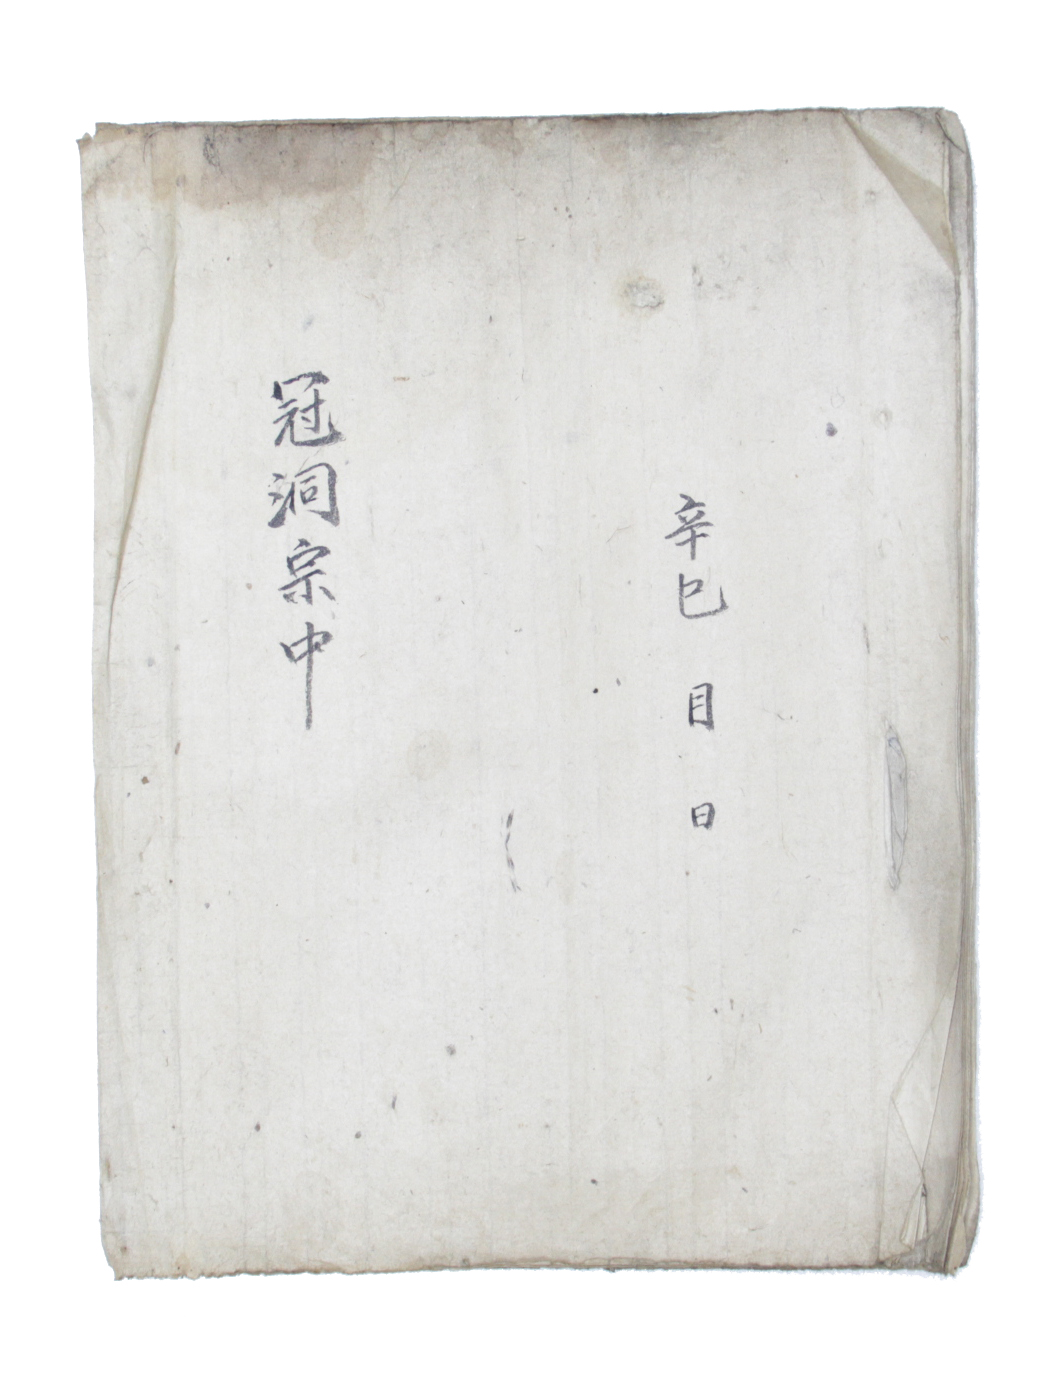 辛巳 月 日
冠洞宗中